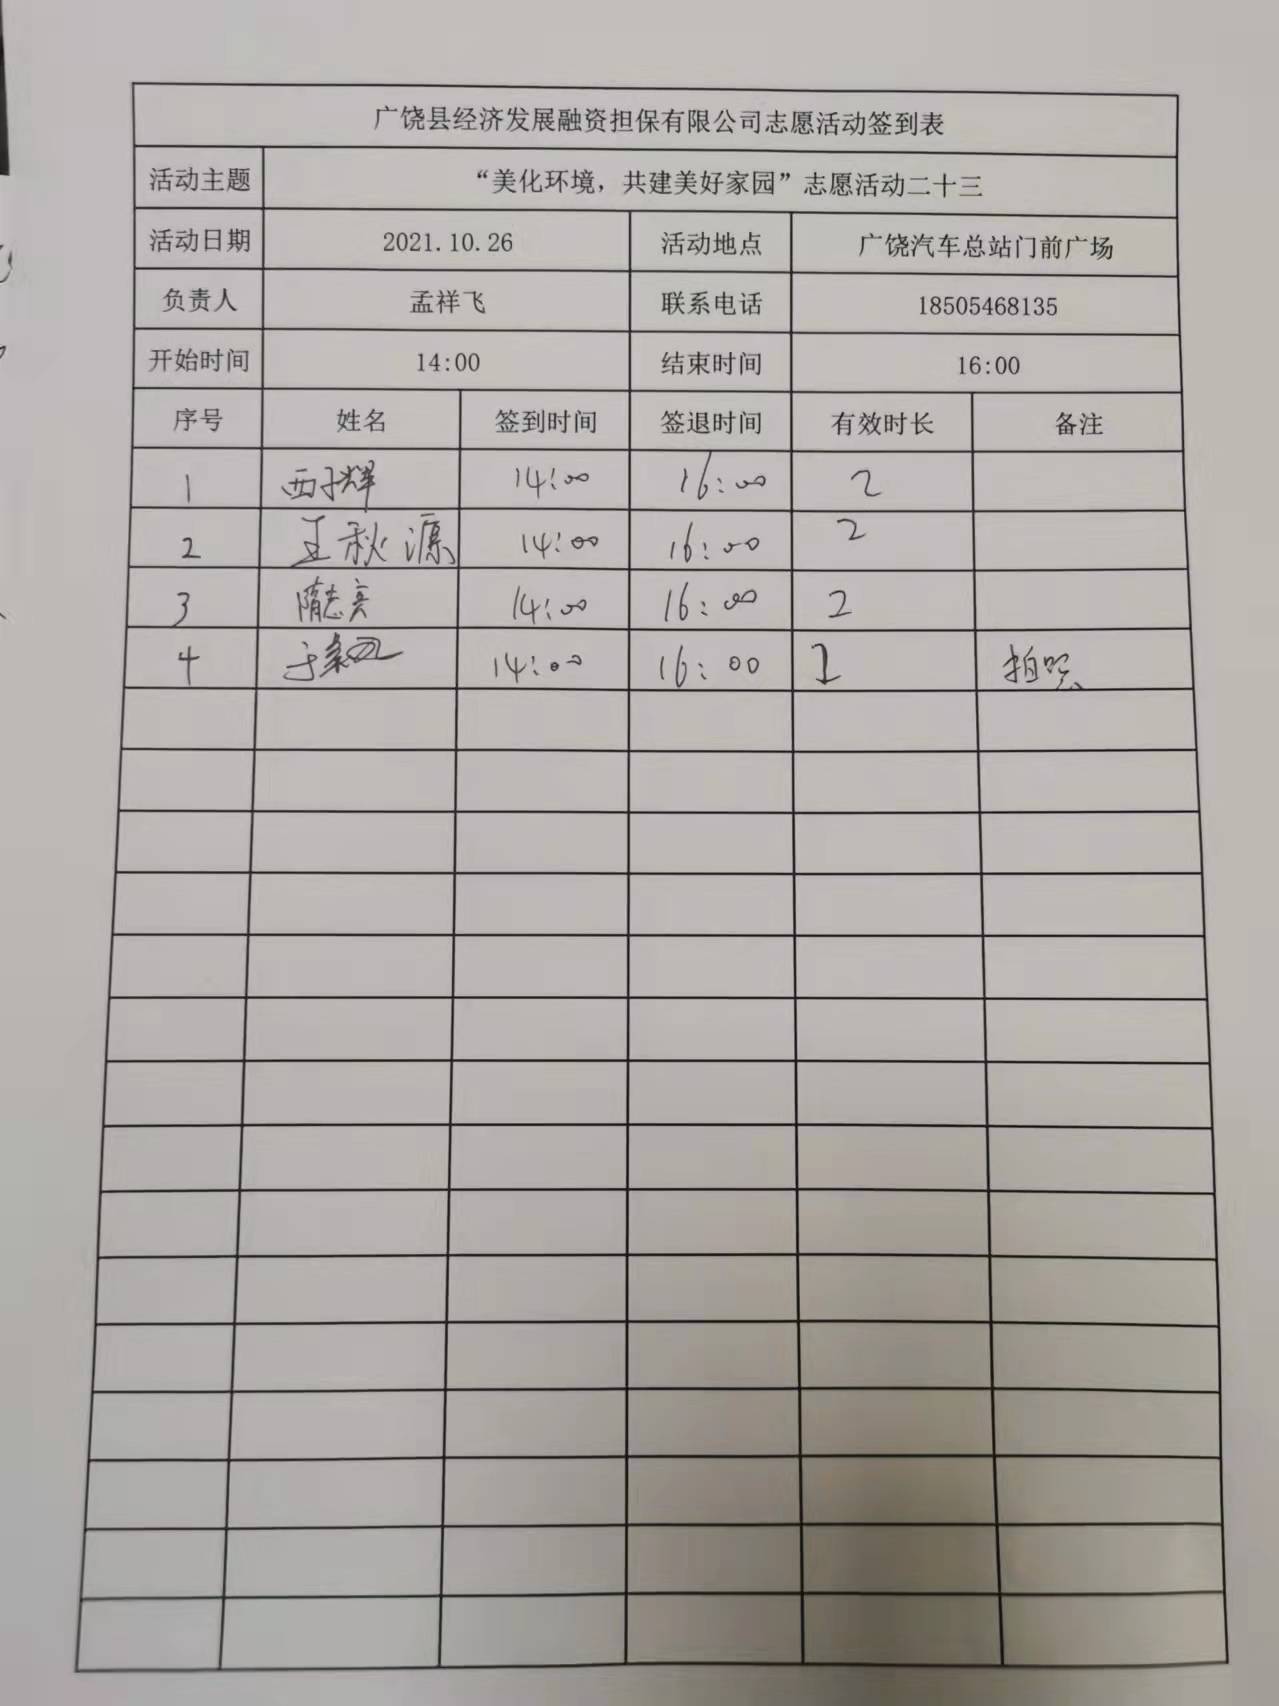 广饶县经济发展融资担保有限公司志愿活动签到表
活动主题 “美化环境，共建美好家园”志愿活动二十三
活动日期 2021.10.26 活动地点 广饶汽车总站门前广场
负责人 孟祥飞 联系电话 18505468135
开始时间 14:00 结束时间 16:00
序号 姓名 签到时间 签退时间 有效时长 备注
1 西子辉 14:00 16:00 2
2 王秋源 14:00 16:00 2
3 隋志 14:00 16:00 2
4 于 14:00 16:00 拍照